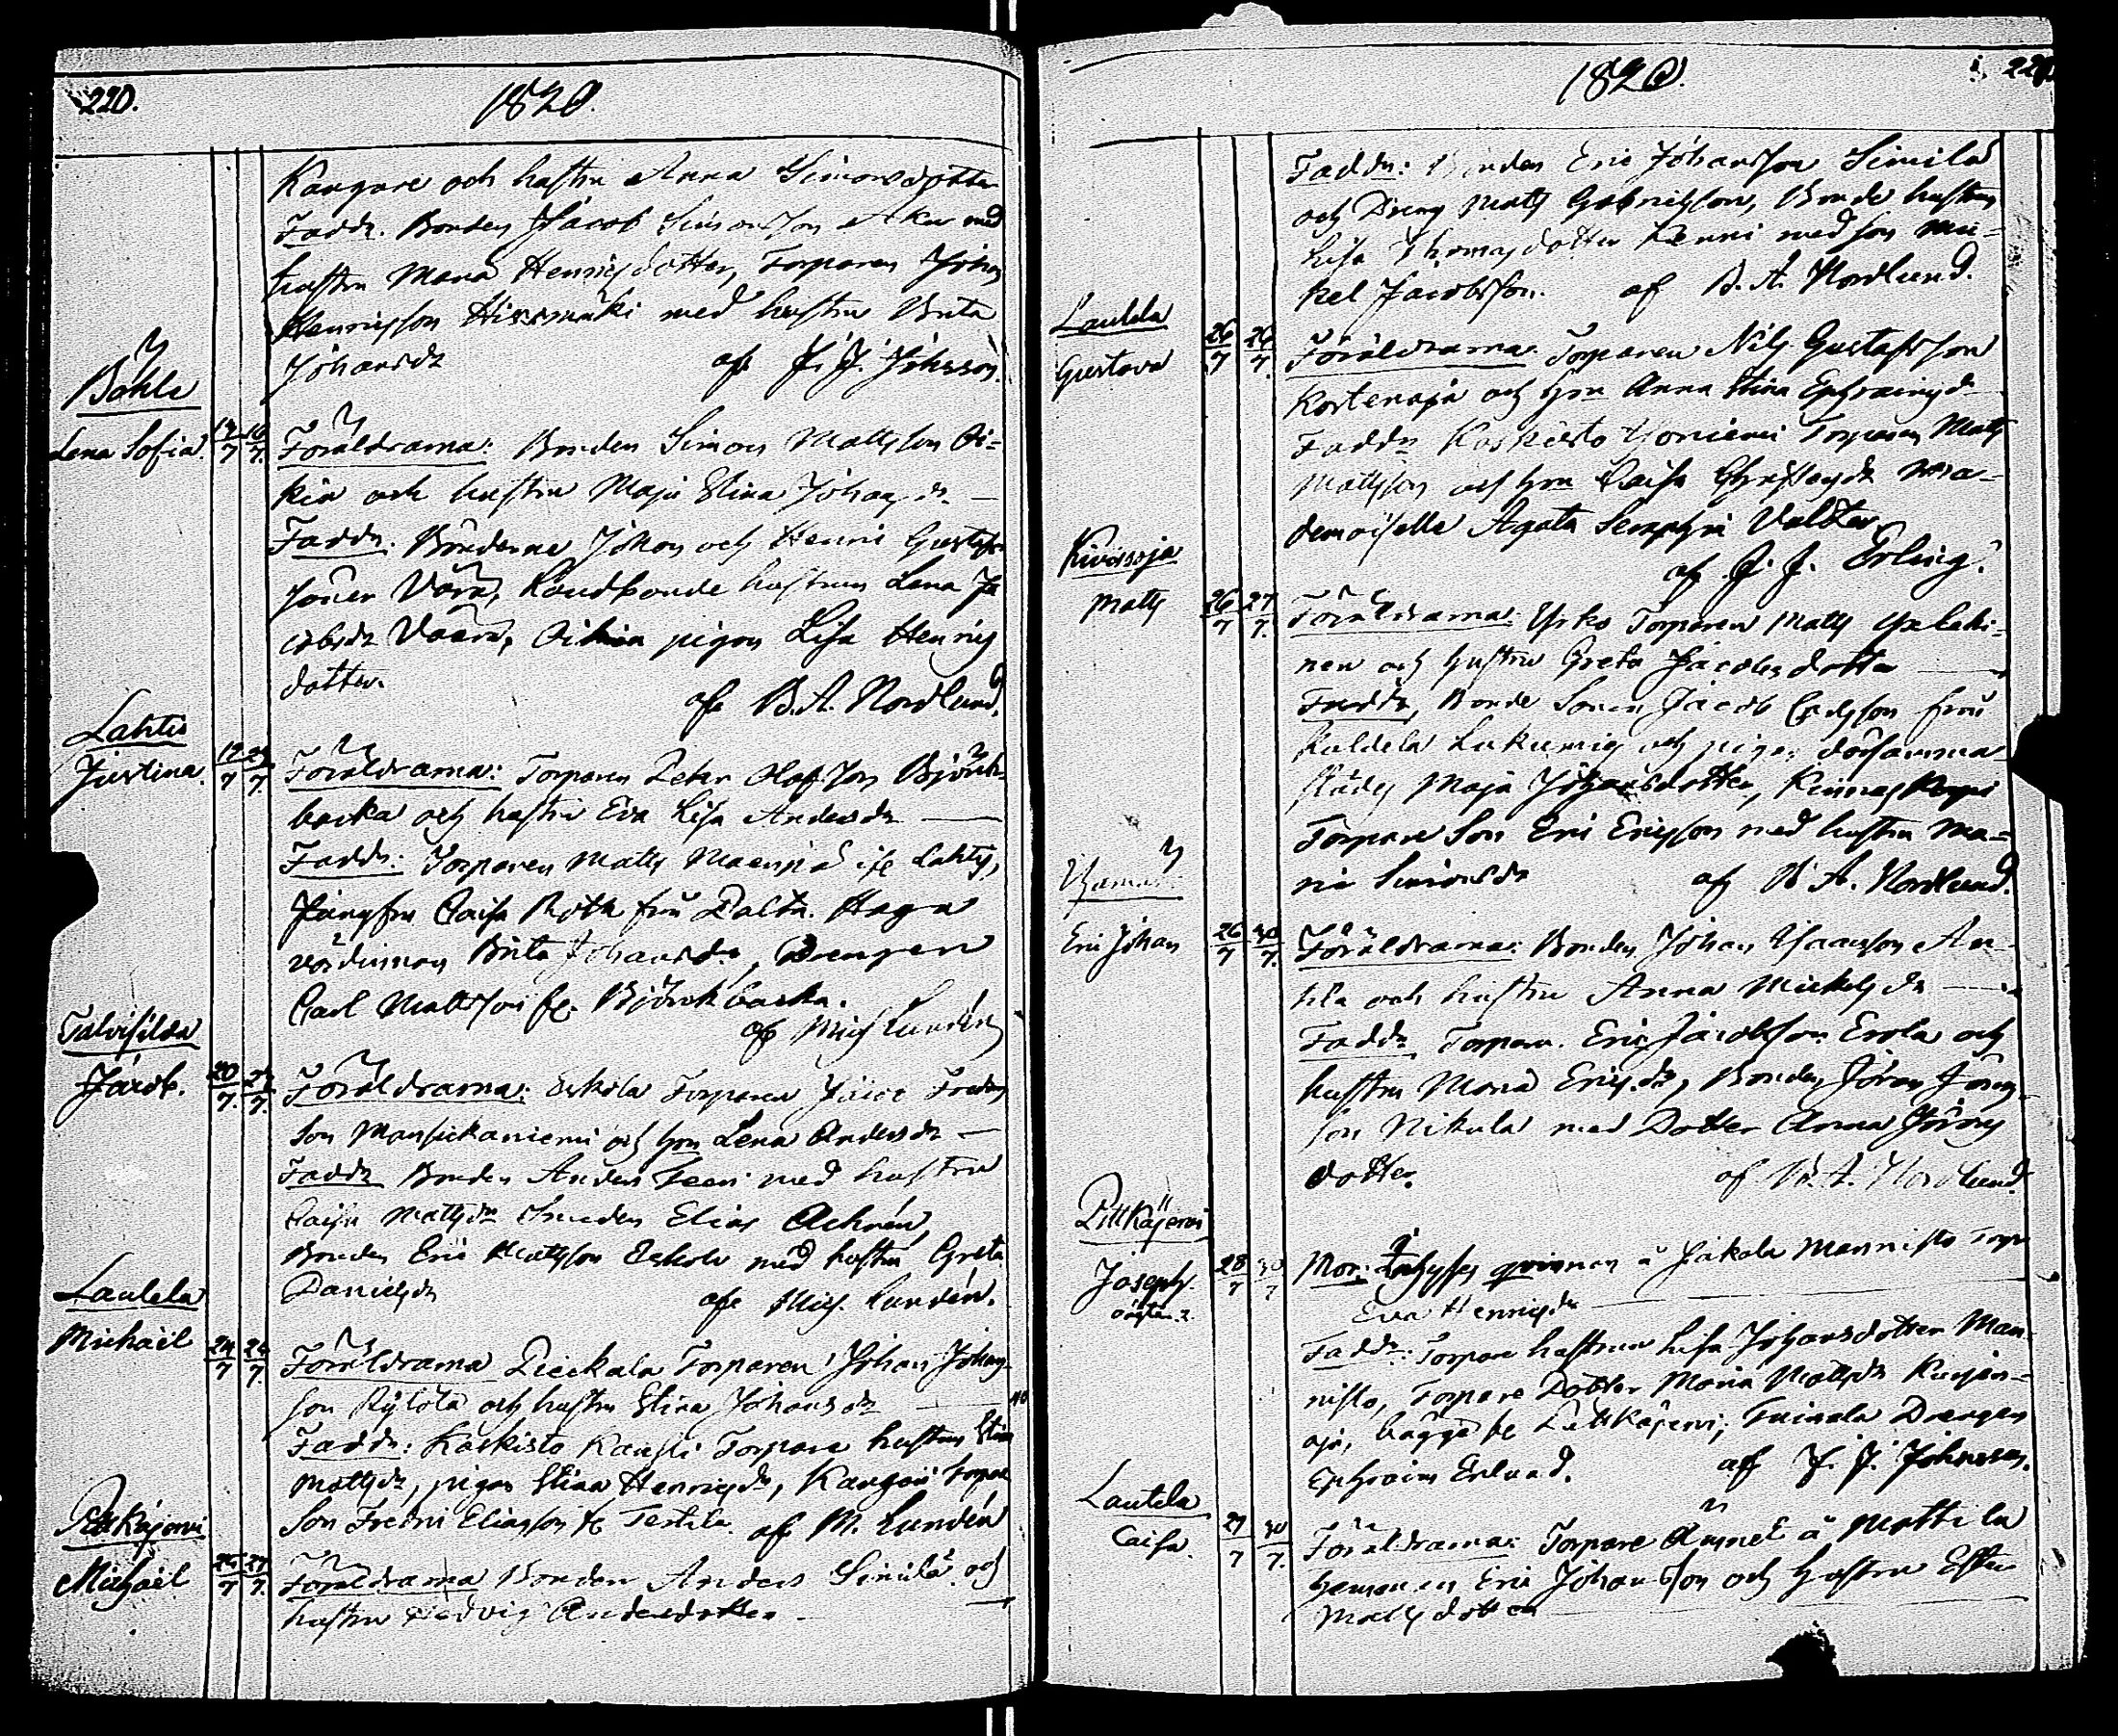 220.
1820.
Kangare och hustru Anna Simonsdotter
Faddr. Bonden Jacob Simonsson med
hustru Maria Henricsdotter, Torparen Johan
Henricsson Hirsimäki med hustru Brita
Johansdr af J. J. Johnsson.
Böhle
Lena Sofia. 7 16/7. Föräldrarna: Bonden Simon Mattsson Oi-
kia och hustru Maja Stina Johansdr
Faddr. Bönderne Johan och Henric Gustafs
söner Våra, bonde hustrun Lena Ja
cobsdr Våra, Oikia pigan Lisa Henrics
dotter.
af B. A. Nordlund.
Lahtis
Justina. 19/7 23/7. Föräldrarna: Torparen Peter Olofsson Björk-
backa och hustru Eva Lisa Andersdr
Faddr: Torparen Matts Lahtis,
Jungfru Caisa Roth frå Haga
värdinnan Brita Johansdr, Drengen
Carl Mattsson fr. Björkbacka.
af Mich Lundén
Talvisilda
Jacob. 20/7. 23/7. Föräldrarna: Eskola Torparen Fredrics
son Mansickaniemi och hru Lena Andersdr
Faddr Bonden Anders Teeri med hustru
Caisa Mattsdr Smeden Elias Achrén,
Bonden Eric Mattsson Eskola med hustru Greta
Danielsdr af Mich. Lundén.
Lautela
Michaël 24/7 26/7. Föräldrarna Pieckala Torparen Johan Johans-
son Rytölä och hustru Stina Johansdr
Faddr: Koskisto Kauppi Torpare hustrun Stina
Mattsdr, pigan Stina Henricsdr, Torpare
Son Fredric Eliasson fr Testila. af M. Lundén
Pittkäjervi
Michaël 25/7 27/7. Föräldrarna Bonden Anders Similä och
hustru Hedvig Andersdotter
1820.
221.
Faddr: Bonden Eric Johansson Similä
och Dreng Matts Gabrielsson, Bonde hustrun
Lisa Thomasdotter Kenni med son Mi-
kel Jacobsson. af B. A. Nordlund.
Lautela
Gustava 26/7 26/7. Föräldrarna. Torparen Nils Gustafsson
Kortenoja och hru Anna Stina Ephraimsdr
Faddr Koskisto Torparen Matts
Mattsson och hru Caisa ma-
demoiselle Agata Seraphia
af J. J. Erling.
Kivisoja
Matts 26/7 27/7. Föräldrarna: Yrkö Torparen Matts
nen och hustru Greta Jacobsdotter
Faddr, Bonde Sonen Jacob frå
och pigan dersamma-
städes Maja Johansdotter,
Torpare Son Eric Ericsson med hustru Ma-
ria Simonsdr af B A. Nordlund.
Eric Johan 26/7 30/7. Föräldrarna: Bonden Johan Isacsson An-
tila och hustru Anna Mickelsdr
Faddr Torparen Eric Jacobsson Erola och
hustru Maria Ericsdr, Bonden Jöran Jörans-
son Nikula med Dotter Anna Jörans
dotter. af B. A. Nordlund
Pittkäjervi
Joseph. 28/7 30/7 Mor: qvinnan å Jakala Mannisto Torp
oäkta. Eva Henricsdr
Faddr: Torpare hustrun Lisa Johansdotter Man-
nisto, Torpare Dotter Maria Mattsdr
oja, bägge fr Pittkäjervi, Tuinala Drengen
Ephraim Erlund. af J. J. Johnsson.
Lautela
Caisa. 29/7 30/7. Föräldrarna: Torpare å Mattila
hemman Eric Johansson och hustru Ester
Mattsdotter